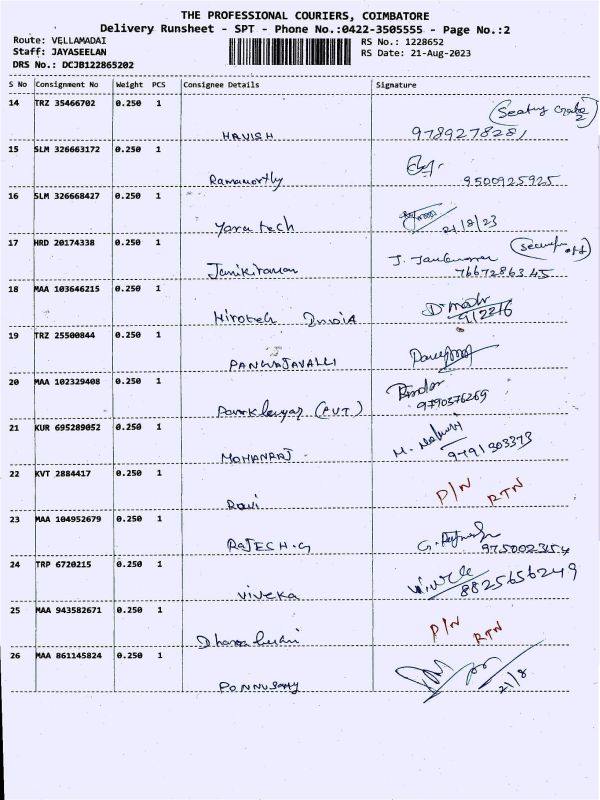 THE PROFESSIONAL COURIERS, COIMBATORE
Delivery Runsheet - SPT - Phone No.:0422-3505555 - Page No.:2
Route: VELLAMADAI RS No.: 1228652
Staff: JAYASEELAN RS Date: 21-Aug-2023
DRS No.: DCJB122865202
S No Consignment No Weight PCS Consignee Details Signature
14 TRZ 35466702 0.250 1
HAVISH 9789278281
15 SLM 326663172 0.250 1
Ramamorthy 9500925925
16 SLM 326668427 0.250 1
Yora tech 21/8/23
17 HRD 20174338 0.250 1
Janikiraman 7667286345
18 MAA 103646215 0.250 1
Hirotech India
19 TRZ 25500844 0.250 1
PANGAJAVALLI
20 MAA 102329408 0.250 1
(PVT) 9790376269
21 KUR 695289052 0.250 1
MOHANRAJ 9791303373
22 KVT 2884417 0.250 1
Ravi P/N RTN
23 MAA 104952679 0.250 1
RAJESH.G 975002354
24 TRP 6720215 0.250 1
viveka 8825656249
25 MAA 943582671 0.250 1
P/N RTN
26 MAA 861145824 0.250 1
PONNUSAMY 21/8